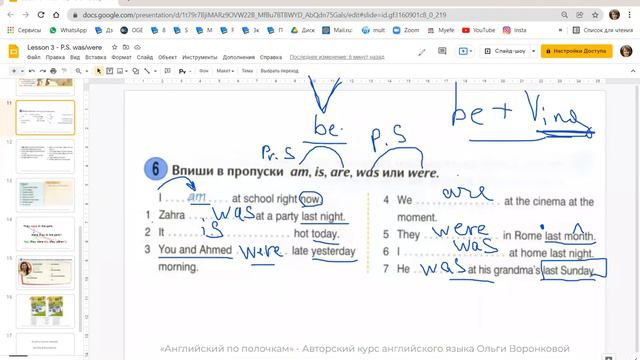 Lesson 3 - P.S. was/were
docs.google.com/presentation/d/1t79r7BjiMARz9OVW22B_MfBu7BT8WYD_AbQdn75GaIs/edit#slide=id.gf3160901c8_0_219
Сервисы
WhatsApp
Диск
Переводчик
Mail.ru
YouTube
Список для чтения
Lesson 3 - P.S. was/were
Файл Правка Вид Вставка Формат Слайд Объект Инструменты Дополнения Справка
Последнее изменение: 6 минут назад
Слайд-шоу
Настройки Доступа
Фон Макет Тема Выбрать переход
11
12
13
14
15
16
17
be + Ving
be.
Pr.S P.S
6 Впиши в пропуски am, is, are, was или were.
I am at school right now.
1 Zahra was at a party last night.
2 It is hot today.
3 You and Ahmed were late yesterday
morning.
4 We are at the cinema at the
moment.
5 They were in Rome last month.
6 I was at home last night.
7 He was at his grandma's last Sunday.
«Английский по полочкам» - Авторский курс английского языка Ольги Воронковой